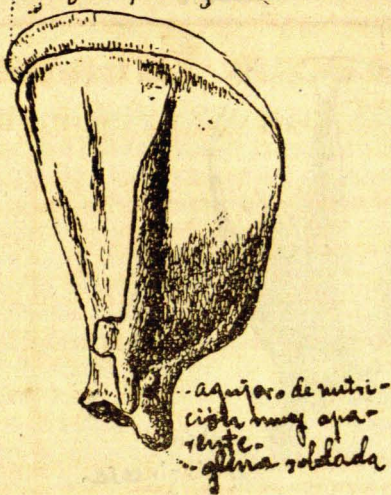 agujero de nutri-
ción muy apa-
rente.
glena soldada